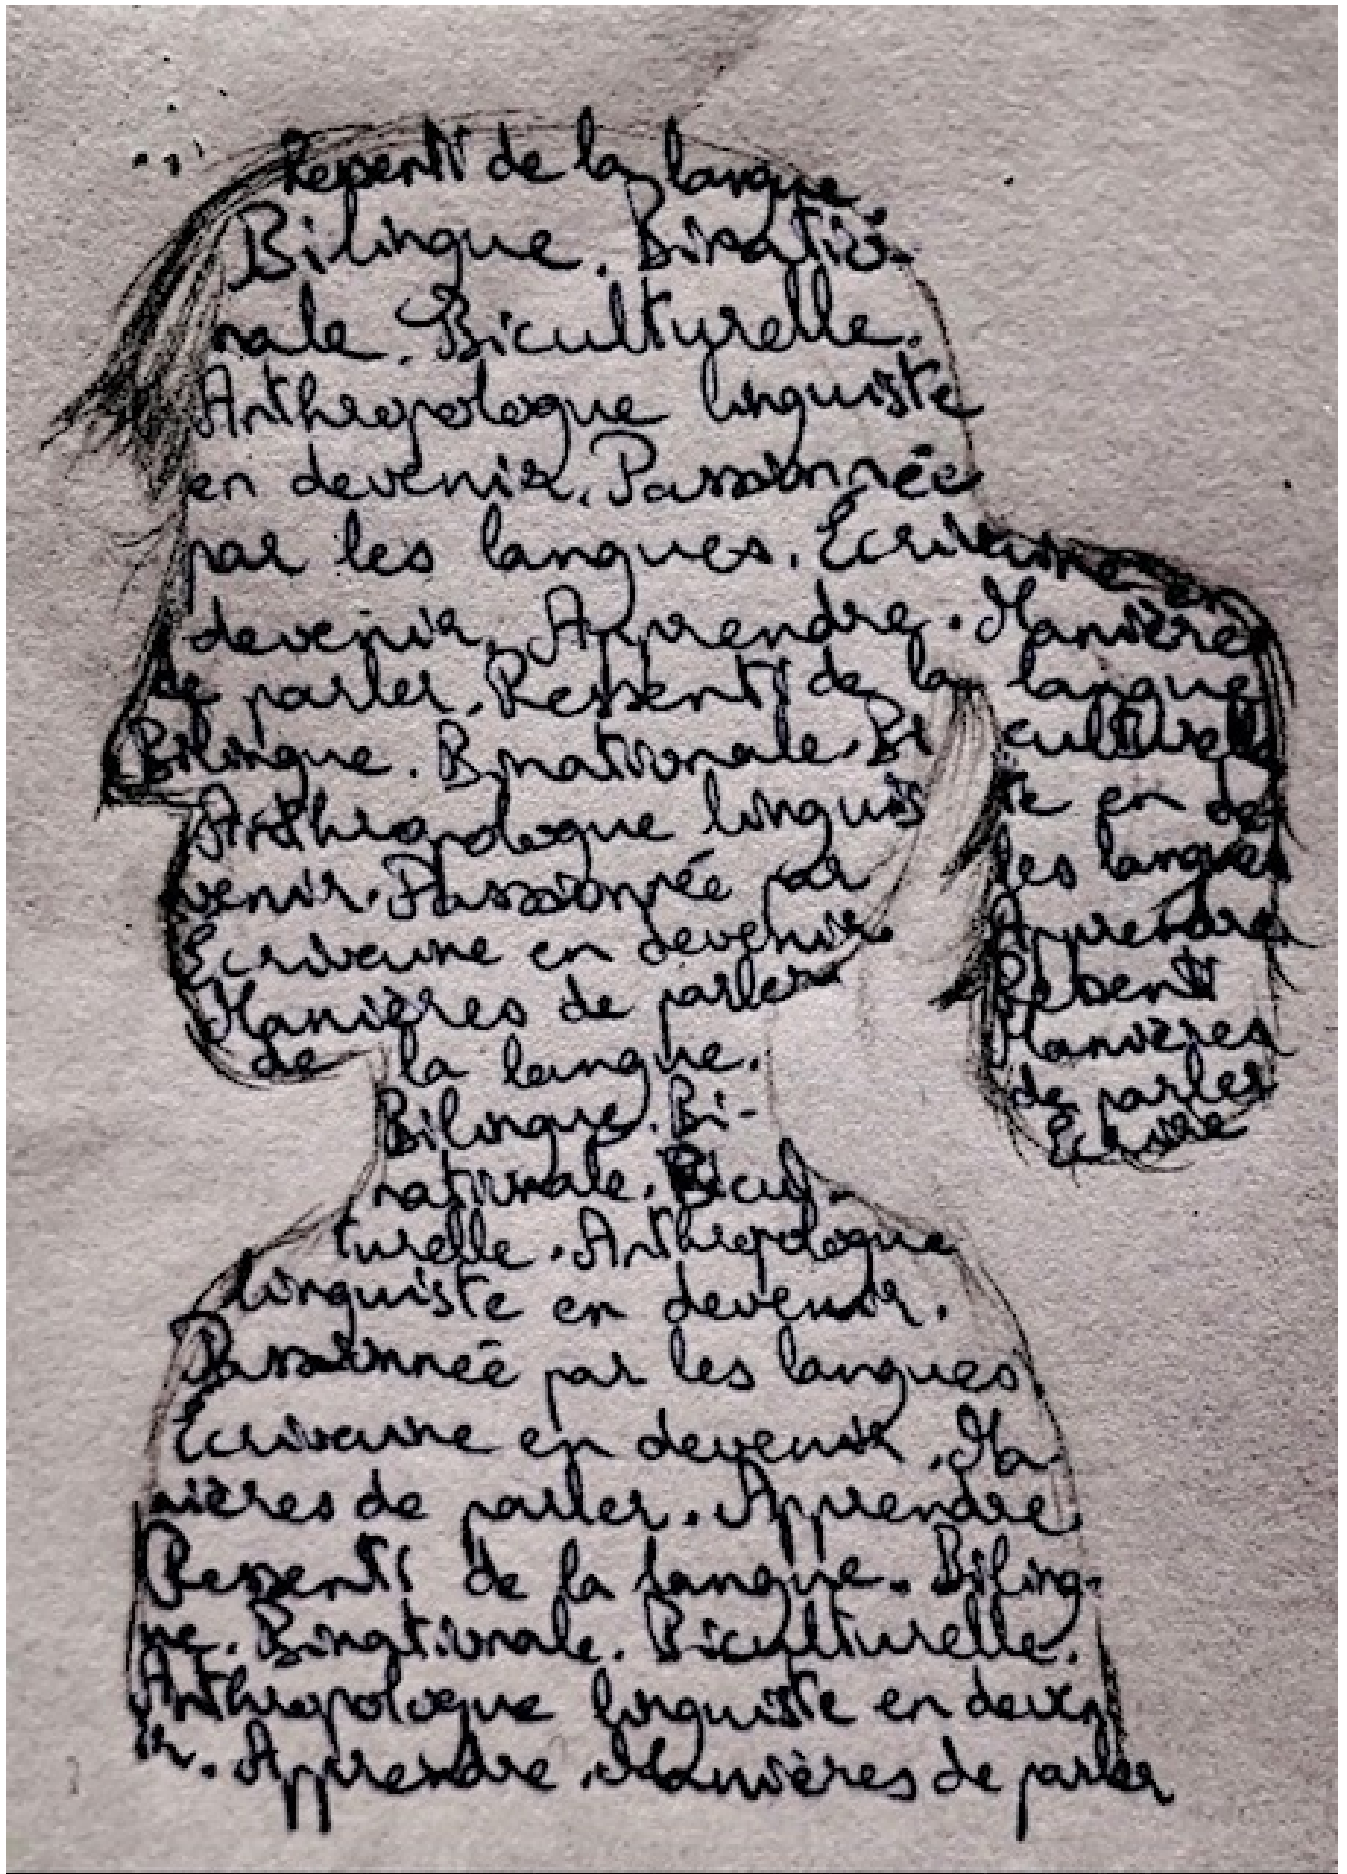 Ressenti de la langue.
Bilingue. Binatio-
nale. Biculturelle.
Anthropologue linguiste
en devenir. Passionnée
par les langues. Ecrivaine en
devenir. Apprendre. Manières
de parler. Ressenti de la langue
Bilingue. Binationale. Bi culturelle
Anthropologue linguis te en de
venir. Passionnée par les langues
Ecrivaine en devenir. Apprendre
Manières de parler Ressenti
de la langue. Manières
Bilingue. Bi- de parler
nationale. Bicul- Ecrire
turelle. Anthropologue
linguiste en devenir.
Passionnée par les langues.
Ecrivaine en devenir. Ma-
nières de parler. Apprendre.
Ressenti de la langue. Biling-
ue. Binationale. Biculturelle.
Anthropologue linguiste en deven
ir. Apprendre. Manières de parler